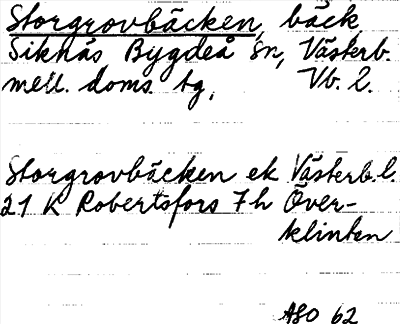 Storgrovbäcken, bäck
Siknäs Bygdeå sn, Västerb.
mell. doms. tg, Vb. 2.
Storgrovbäcken ek Västerb.l.
21 K Robertsfors 7h Över-
klinten
ASO 62